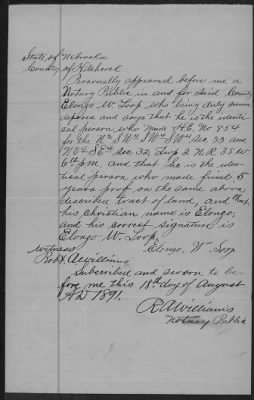 State of Nebraska
County of Hitchcock
Personally appeared before me a
Notary Public in and for said County
Elonzo W. Loop who being duly sworn
deposes and says that he is the identi
cal person who made H.E. No 854
for the N½ SW¼ SW¼ SW¼ Sec 33 and
SE¼ Sec 32, Twp 2 N.R. 35 W
6th p.m. and that he is the iden
tical person who made final 5
years proof on the same above
described tract of land, and that
his Christian name is Elonzo,
and his correct signature is
Elonzo W. Loop
witness Elonzo W. Loop
Robt. Aewilliams
Subscribed and sworn to be
fore me this 18th day of August
AD 1891.
RAWilliams
Notary Public